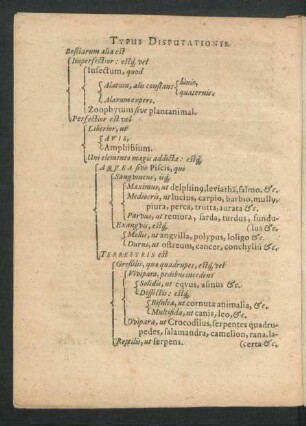 TYPUS DISPUTATIONIS.
Bestiarum alia est
Imperfectior: estq́ vel
Insectum, quod
Alatum, alis constans
binis,
quaternis.
Alarum expers.
Zoophytum sive plantanimal.
Perfectior est vel
Liberior, ut
AVIS,
Amphibium.
Uni elemento magis addicta: estq́
AQUEA sive Piscis, qui
Sanguineus, isq́
Maximus, ut delphinꝰ, leviathã, salmo. &c.
Mediocris, ut lucius, carpio, barbio, mullꝰ,
piura, perca, trutta, aurata &c.
Parvus, ut remora, sarda, turdus, fundu-
(lus &c.
Exanguis, estq́;
Mollis, ut angvilla, polypus, loligo &c.
Durus, ut ostreum, cancer, conchyliũ &c.
TERRESTRIS est
Gresilis, quæ quadrupes, estq́; vel
Vivipara, pedibus incedens
Solidis, ut eqvus, asinus &c.
Dissectis: estq́;
Bisulca, ut cornuta animalia, &c.
Multifida, ut canis, leo, &c.
Ovipara, ut Crocodilus, serpentes quadru-
pedes, salamandra, camelion, rana, la-
Reptilis, ut serpens.
(certa &c.